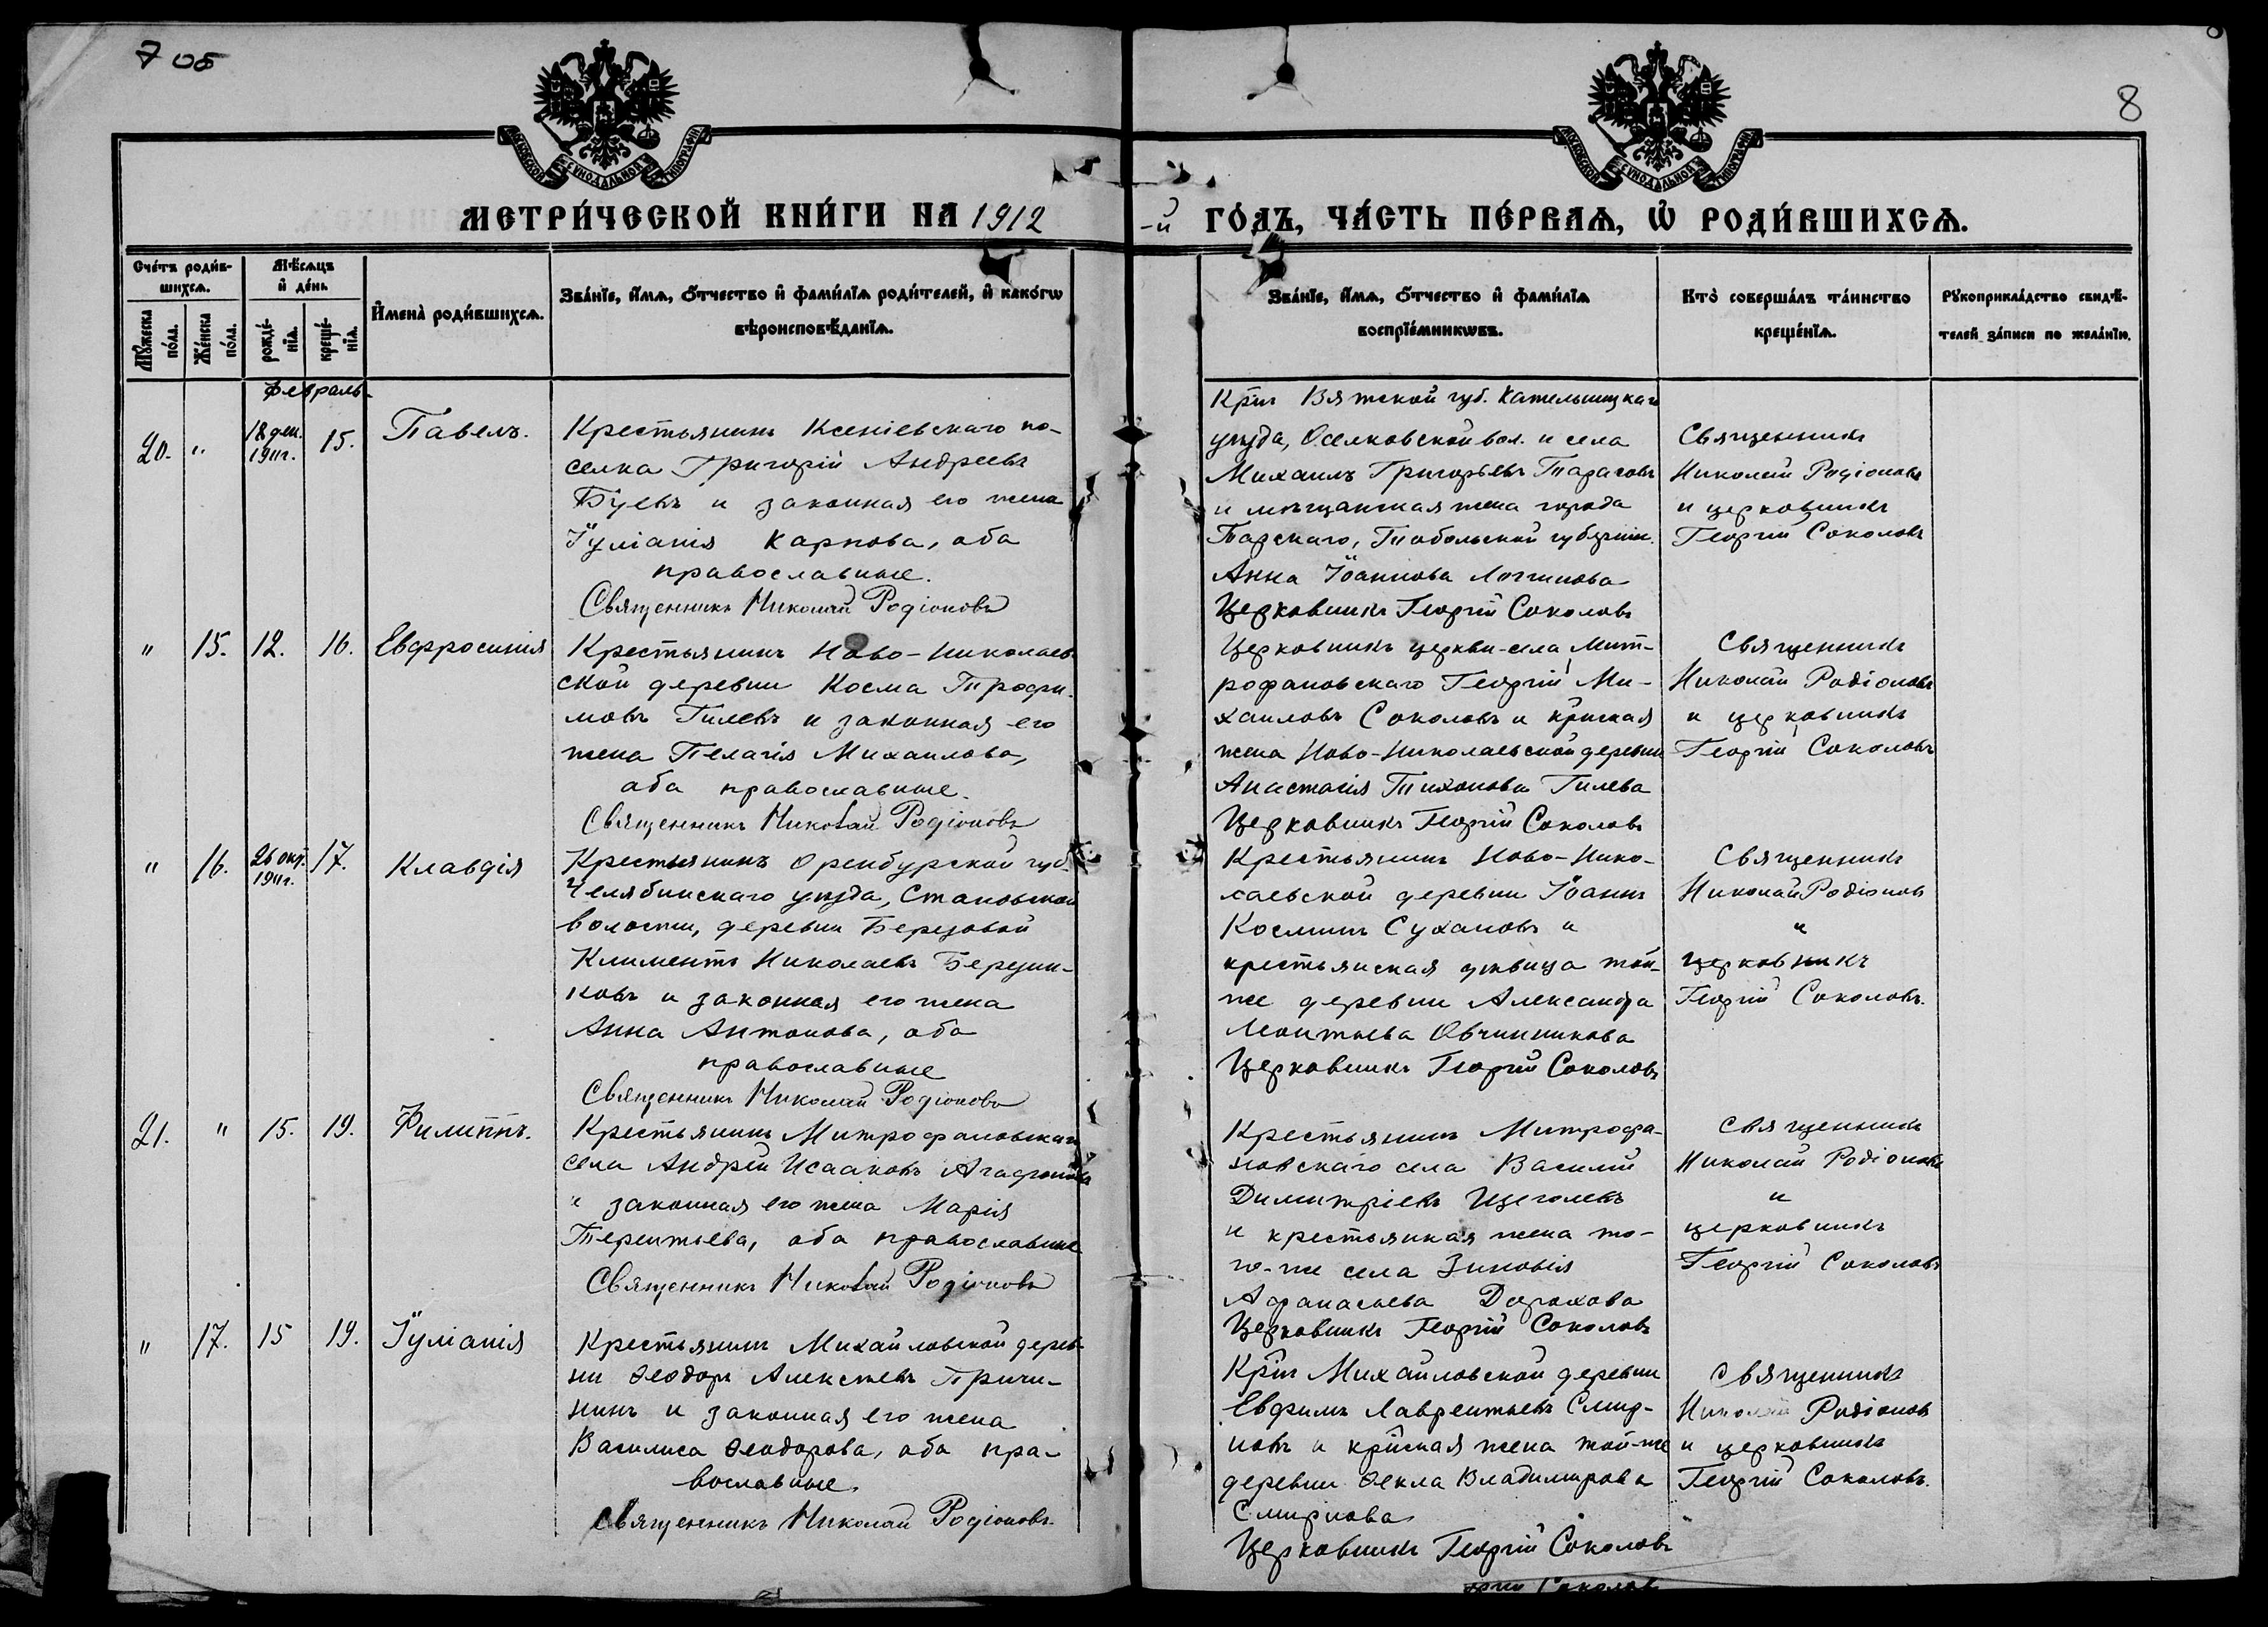 7 об
8
МОСКОВСКОЙ СѴНОДАЛЬНОЙ ТИПОГРАФІИ
МОСКОВСКОЙ СѴНОДАЛЬНОЙ ТИПОГРАФІИ
МЕТРИ́ЧЕСКОЙ КНИ́ГИ НА 1912
-й ГО́ДЪ, ЧА́СТЬ ПЕ́РВАѦ, Ѡ҆ РОДИ́ВШИХСѦ.
Сче́тъ роди́в-
шихсѧ.
Мꙋ́жеска по́ла.
Же́нска по́ла.
Мѣ́сѧцъ
и҆ де́нь
рожде́нїѧ.
креще́нїѧ.
И҆мена̀ роди́вшихсѧ.
Зва́нїе, и҆́мѧ, ѻ҆́тчество и҆ фами́лїѧ роди́телей, и҆ како́гѡ
вѣроисповѣ́данїѧ.
Зва́нїе, и҆́мѧ, ѻ҆́тчество и҆ фами́лїѧ
воспрїе́мникѡвъ.
Кто̀ соверша́лъ та́инство
креще́нїѧ.
Рꙋкоприкла́дство свидѣ́-
телей за́писи по жела́нїю.
Февраль
20. " 18 дек. 1911г. 15. Павелъ.
Крестьянинъ Ксеніевскаго по-
селка Григорій Андреевъ
Буевъ и законная его жена
Іуліанія Карпова, оба
православные.
Священникъ Николай Родіоновъ
Кр̃нъ Вятской губ. Котельницкаго
уѣзда, вол. и села
Михаилъ Григорьевъ Тарасовъ
и мѣщанская жена города
Тарскаго, Тобольской губерніи.
Анна Іоаннова Логинова
Церковникъ Георгій Соколовъ
Священникъ
Николай Родіоновъ
и церковникъ
Георгій Соколовъ
" 15. 12. 16. Евфросинія
Крестьянинъ Ново-Николаев-
ской деревни Косма Трофи-
мовъ Гилевъ и законная его
жена Пелагія Михаилова,
оба православные.
Священникъ Николай Родіоновъ
Церковникъ церкви-села Мит-
рофановскаго Георгій Ми-
хаиловъ Соколовъ и кр̃нская
жена Ново-Николаевской деревни
Анастасія Тихонова Гилева
Церковникъ Георгій Соколовъ
Священникъ
Николай Родіоновъ
и церковникъ
Георгій Соколовъ
" 16. 26 окт. 1911г. 17. Клавдія
Крестьянинъ Оренбурской губ.
Челябинскаго уѣзда, Становской
волости, деревни Березовой
Климентъ Николаевъ Березин-
ковъ и законная его жена
Анна Антонова, оба
православные
Священникъ Николай Родіоновъ
Крестьянинъ Ново-Нико-
лаевской деревни Іоаннъ
Косминъ Сухановъ и
крестьянская дѣвица той-
же деревни Александра
Леонтьева Овчинникова
Церковникъ Георгій Соколовъ
Священникъ
Николай Родіоновъ
и
церковникъ
Георгій Соколовъ.
21. " 15. 19. Филиппъ.
Крестьянинъ Митрофановскаго
села Андрей Исааковъ Агафоновъ
и законная его жена Марія
Терентьева, оба православные
Священникъ Николай Родіоновъ
Крестьянинъ Митрофа-
новскаго села Василій
Димитріевъ Щеголевъ
и крестьянкая жена то-
го-же села Зиновія
Афанасьева Дорохова
Церковникъ Георгій Соколовъ
Священникъ
Николай Родіоновъ
и
церковникъ
Георгій Соколовъ
" 17. 15 19. Іуліанія
Крестьянинъ Михайловской дерев-
ни Ѳеодоръ Алексѣевъ Причи-
нинъ и законная его жена
Василиса Ѳеодорова, оба пра-
вославные.
Священникъ Николай Родіоновъ
Кр̃нъ Михайловской деревни
Евфимъ Лаврентьевъ Смир-
новъ и кр̃нская жена той-же
деревни Ѳекла Владимирова
Смирнова
Церковникъ Георгій Соколовъ
Священникъ
Николай Родіоновъ
и церковникъ
Георгій Соколовъ.